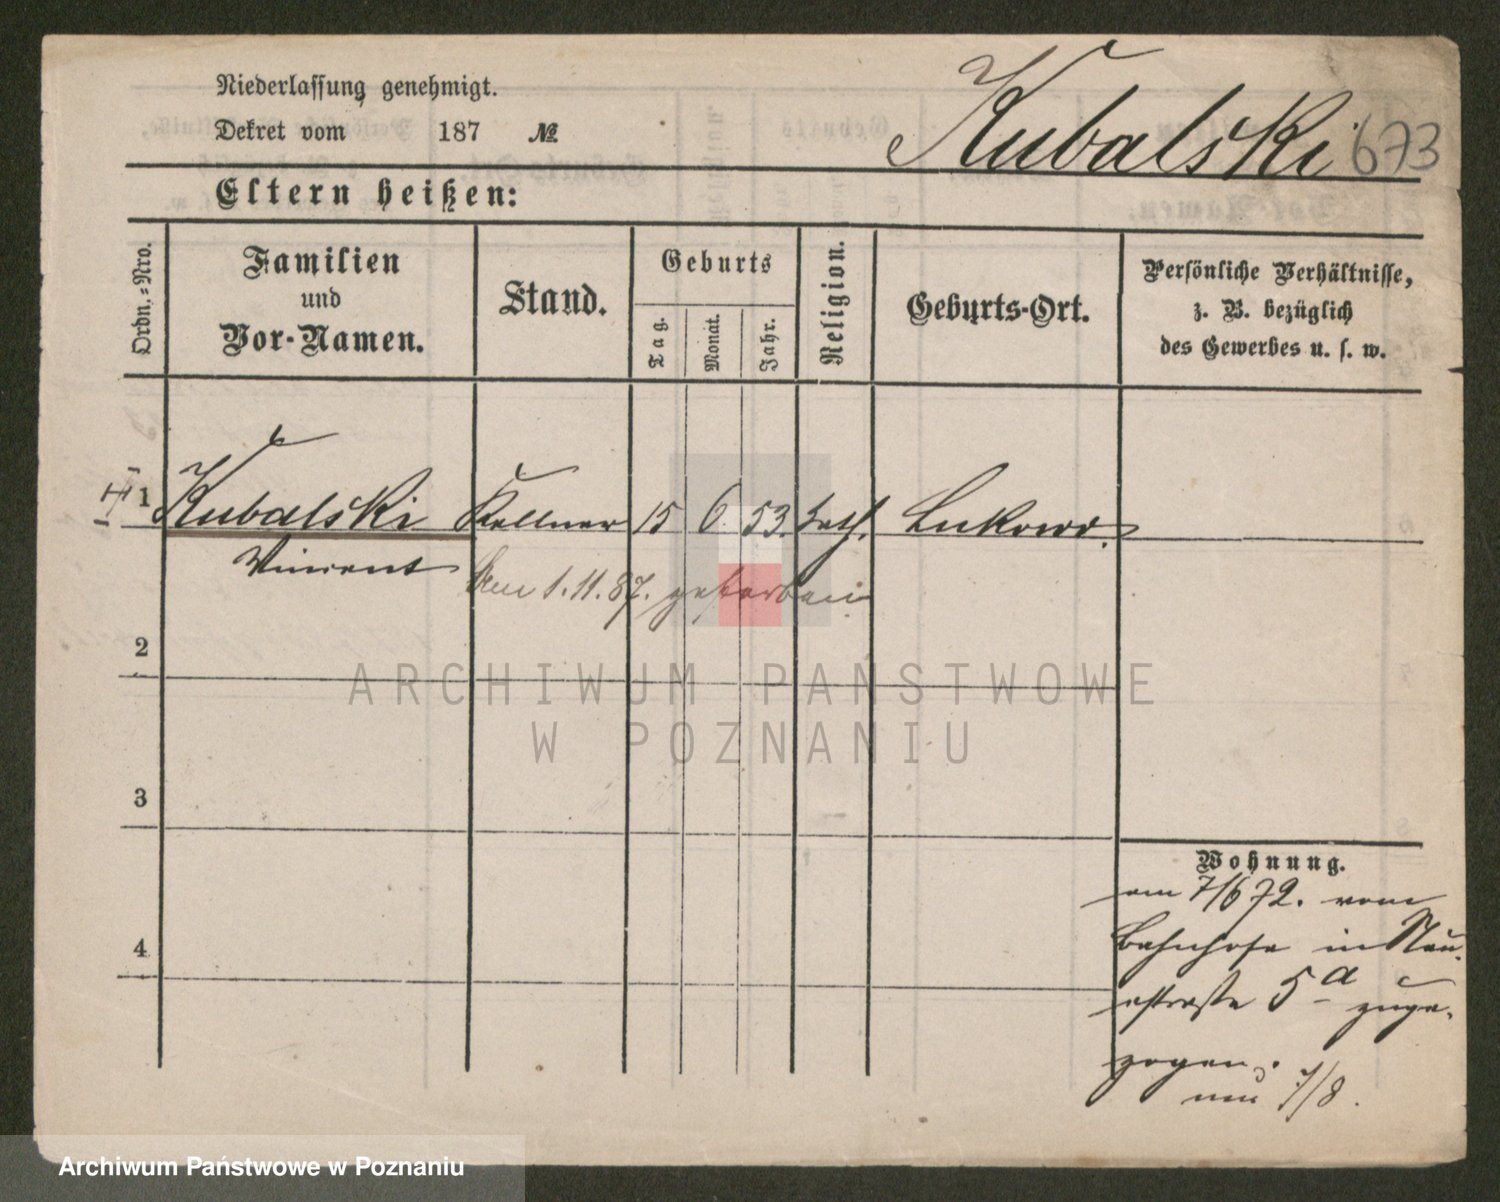 Niederlassung genehmigt.
Dekret vom 187 №
Kubalski 673
Eltern heißen:
Ordn.-Nro.
Familien
und
Vor-Namen.
Stand.
Geburts
Tag.
Monat.
Jahr.
Religion.
Geburts-Ort.
Persönliche Verhältnisse,
z. B. bezüglich
des Gewerbes u. s. w.
1 Kubalski Kellner 15 6. 53. kath. Lukowo.
Vincent
Am 1.11.87. gestorben
2
3
4
Wohnung.
am 7/6 72. vom
Bahnhofe in Neu-
estraße 5a zuge-
zogen.
7/8.
ARCHIWUM PAŃSTWOWE
W POZNANIU
Archiwum Państwowe w Poznaniu